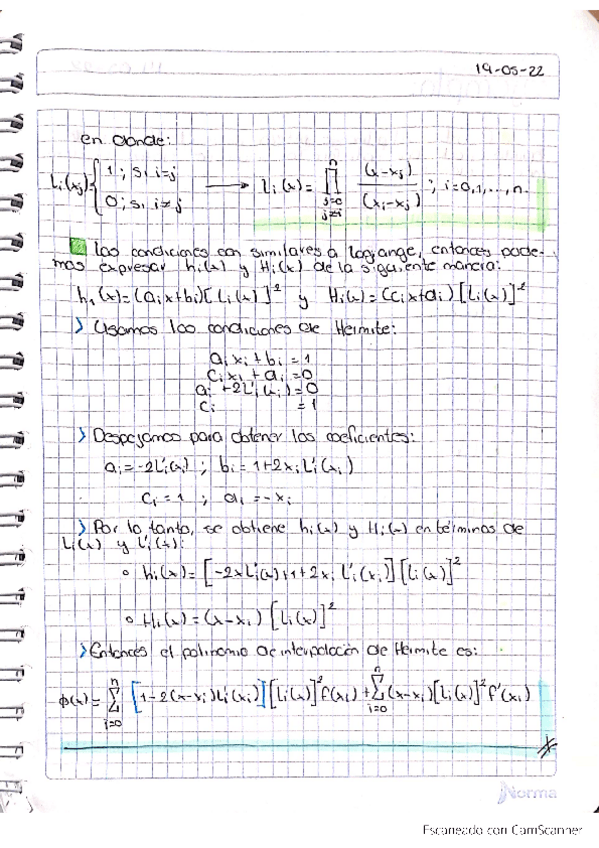 19-05-22
en donde:
Li(xj) { 1 ; si i=j
0 ; si i≠j → Li(x) = ∏ (j=0, j≠i; n) (x-xj) / (xi-xj) ; i=0,1,...,n.
Las condiciones son similares a lagrange, entonces pode-
mos expresar hi(x) y Hi(x) de la siguiente manera:
hi(x)=(aix+bi)[Li(x)]² y Hi(x)=(cix+di)[Li(x)]²
> Usamos las condiciones de Hermite:
aixi+bi=1
cixi+di=0
ai+2L'i(xi)=0
ci =1
> Despejamos para obtener los coeficientes:
ai=-2L'i(xi) ; bi=1+2xiL'i(xi)
ci=1 ; di=-xi
> Por lo tanto, se obtiene hi(x) y Hi(x) en términos de
Li(x) y L'i(x):
○ hi(x)=[-2xL'i(x)+1+2xi L'i(xi)][Li(x)]²
○ Hi(x)=(x-xi)[Li(x)]²
> Entonces el polinomio de interpolación de Hermite es:
ϕ(x)= Σ (i=0; n) [1-2(x-xi)L'i(xi)][Li(x)]²f(xi) + Σ (i=0; n) (x-xi)[Li(x)]²f'(xi)
Norma
Escaneado con CamScanner